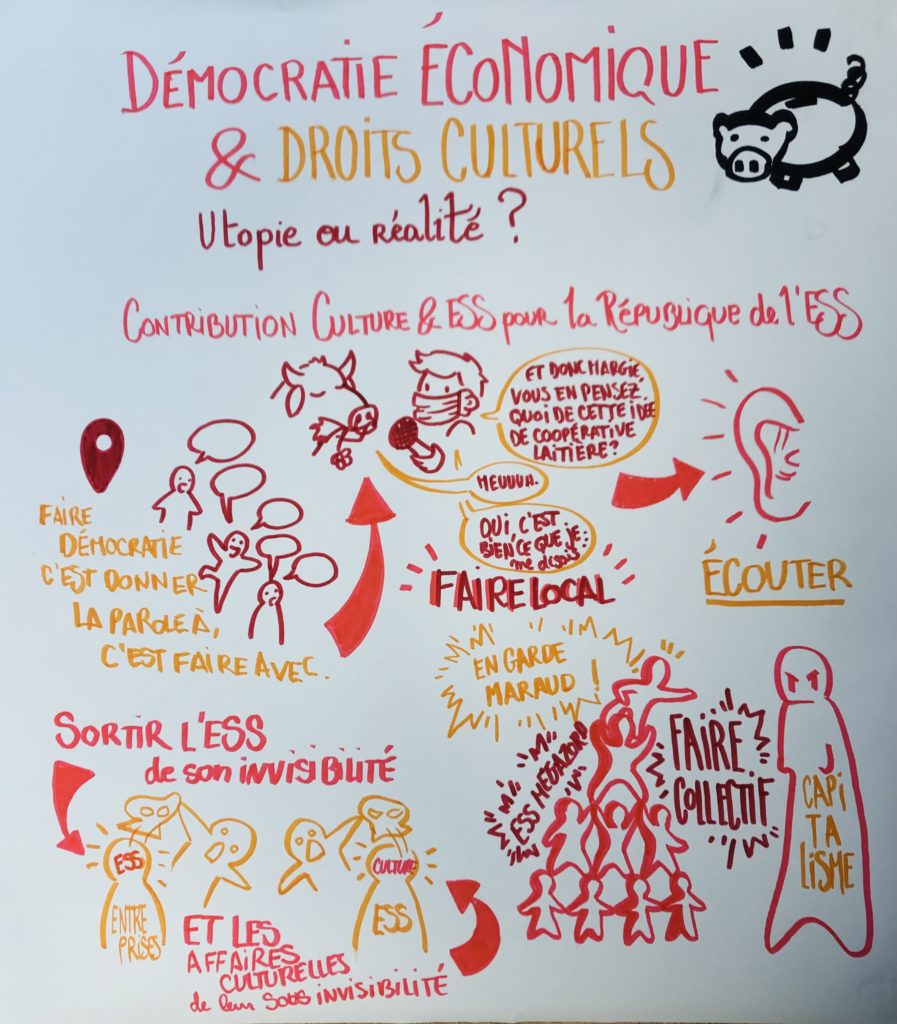 DÉMOCRATIE ÉCONOMIQUE
& DROITS CULTURELS
Utopie ou réalité ?
CONTRIBUTION CULTURE & ESS pour la RÉPUBLIQUE de l'ESS
ET DONC MARGIE,
VOUS EN PENSEZ
QUOI DE CETTE IDÉE
DE COOPÉRATIVE
LAITIÈRE ?
MEUUUA.
OUI, C'EST
BIEN CE QUE JE
me disais
FAIRE LOCAL
ÉCOUTER
FAIRE
DÉMOCRATIE
C'EST DONNER
LA PAROLE À,
C'EST FAIRE AVEC.
EN GARDE
MARAUD !
ESS MEGAZORD
FAIRE
COLLECTIF
CAPI
TA
LISME
SORTIR L'ESS
de son INVISIBILITÉ
ESS
ENTRE
PRISES
CULTURE
ESS
ET LES
AFFAIRES
CULTURELLES
de leur sous INVISIBILITÉ